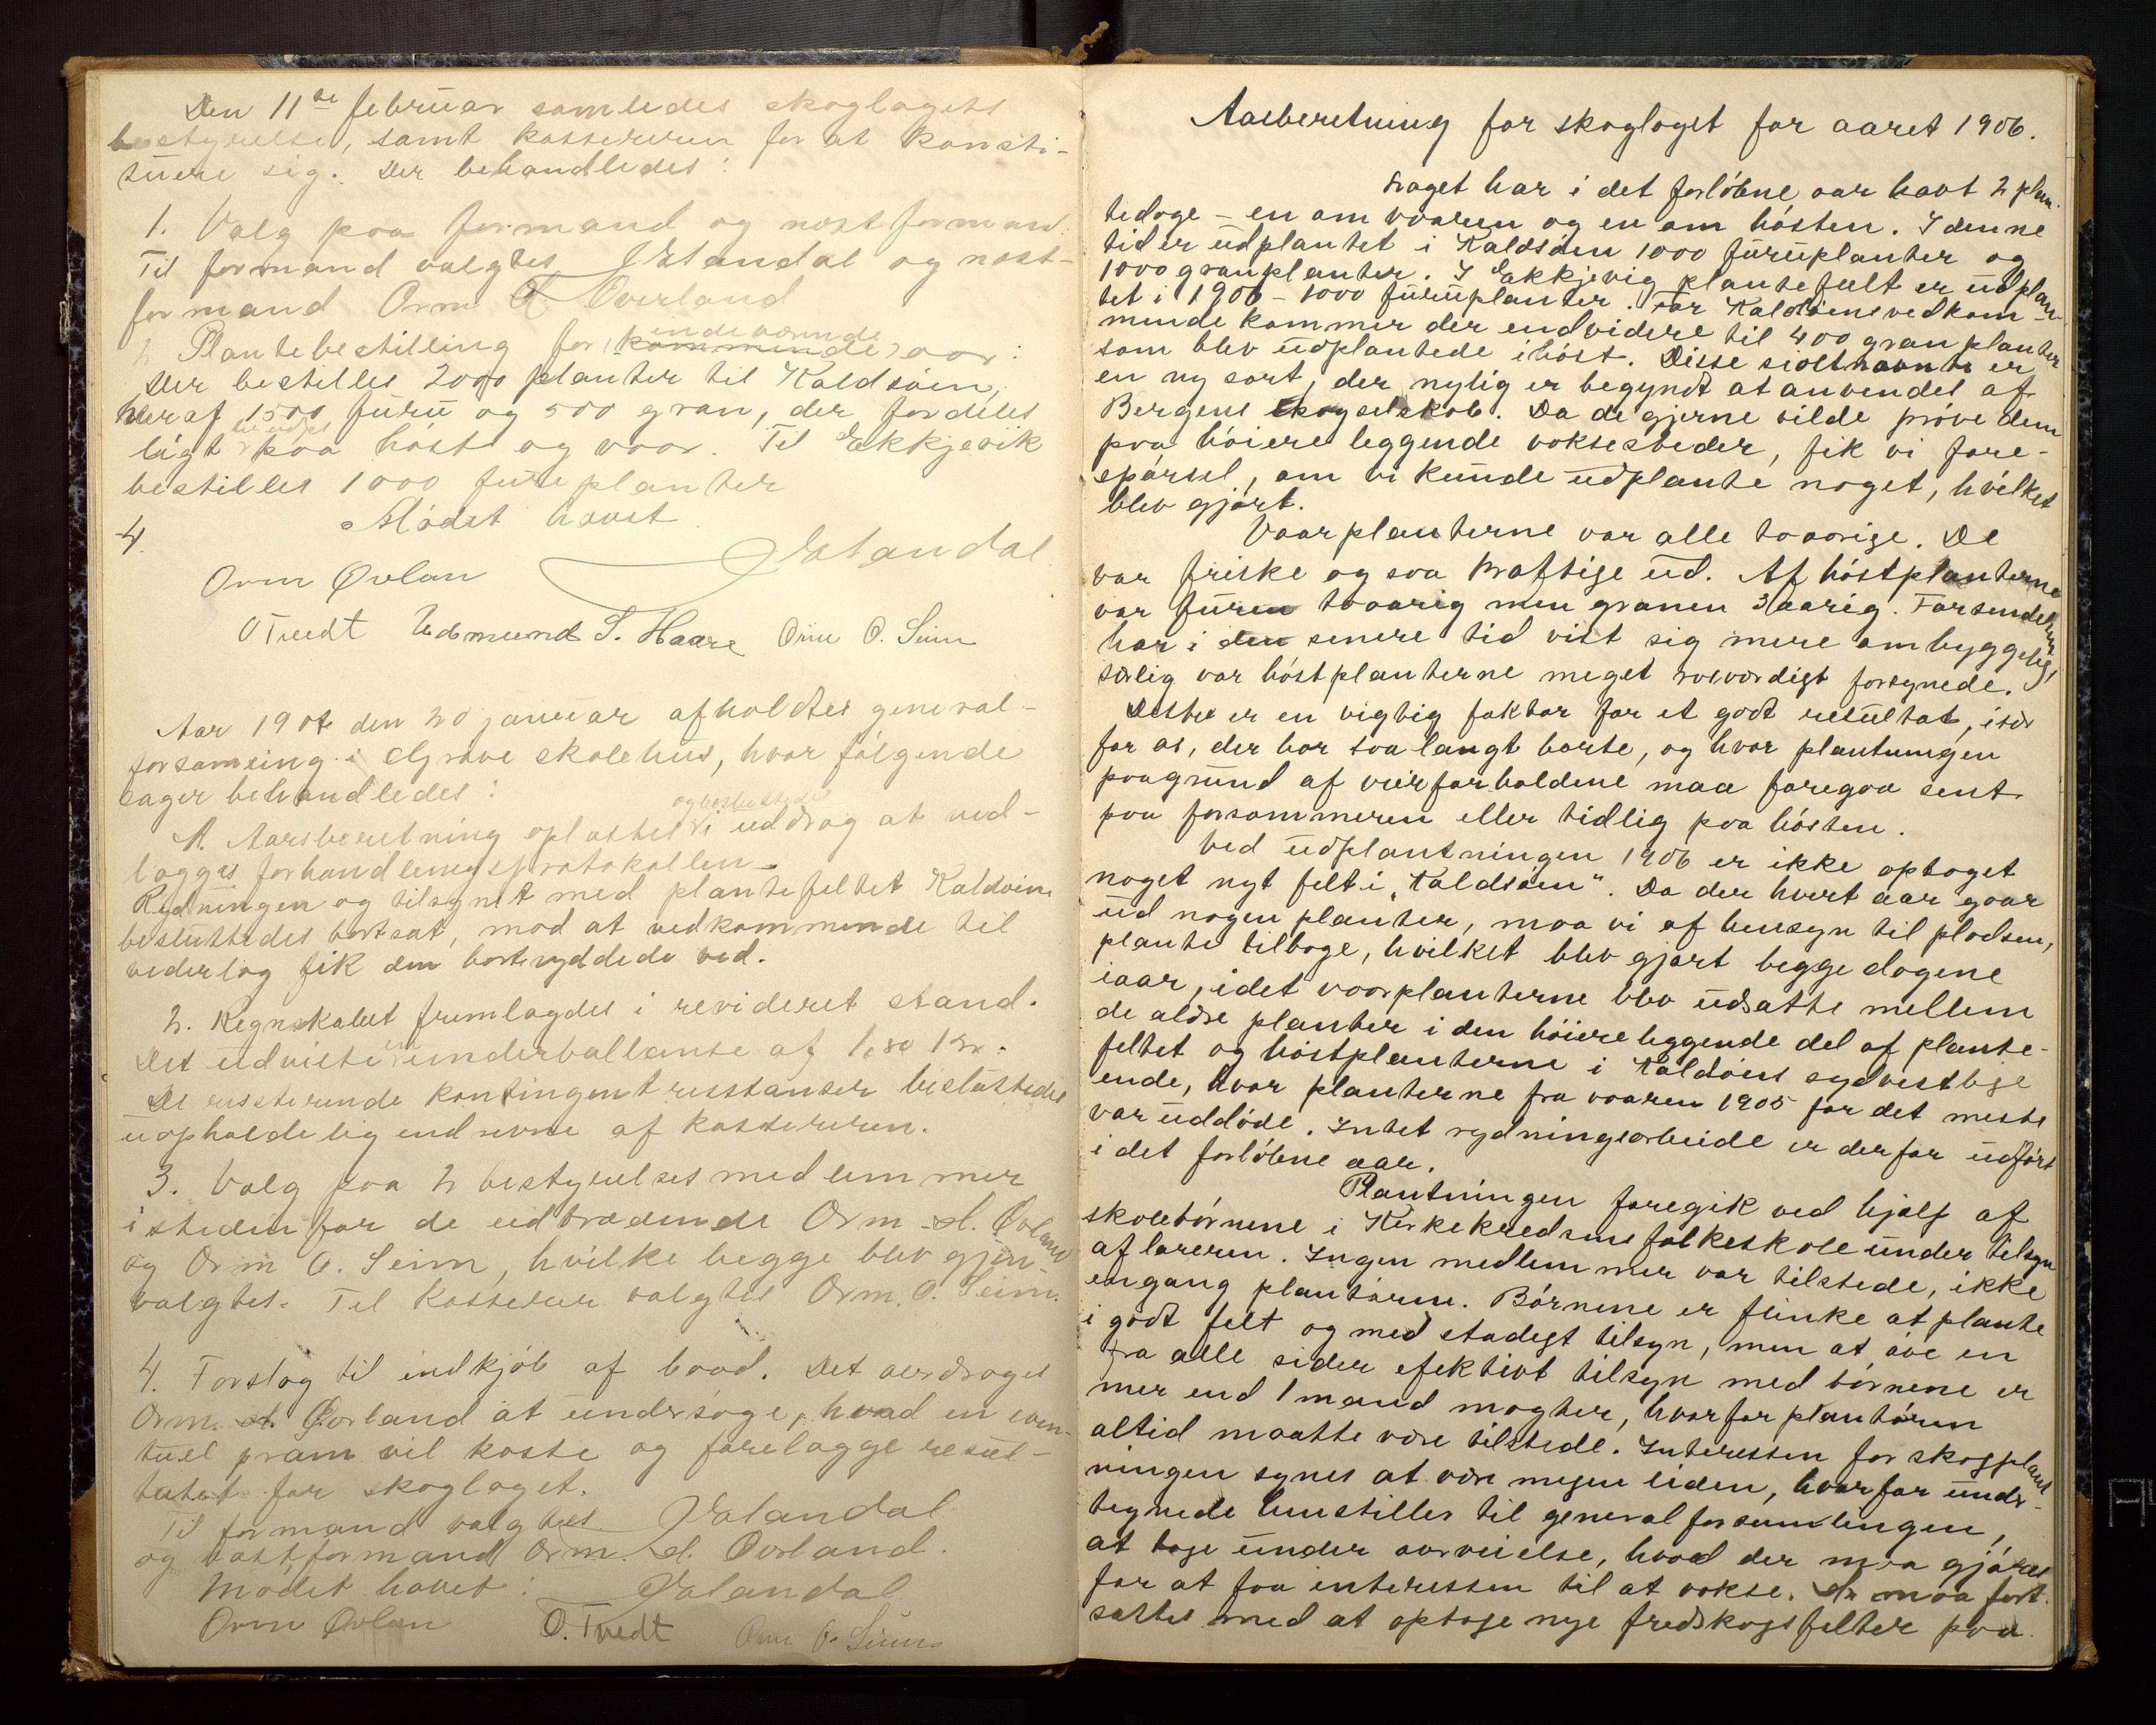 Den 11te februar samledes skoglagets
bestyrelse, samt kassereren for at konsti-
tuere sig. Der behandledes:
1. Valg paa formand og næstformand
Til formand valgtes Jalandal og næst-
formand Orm A Øvrland
2 Plantebestilling for kommende indeværende aar:
Der bestilles 2000 planter til Kaldsøien,
heraf 1500 furu og 500 gran, der fordeles
ligt paa høst og vaar. Til Ekkjevik
bestilles 1000 furuplanter
Mødet hævet
4.
Jalandal
Orm Øvlan
O Tvedt Edmund S. Haare Orm O. Seim
Aar 1907 den 20 januar afholdtes general-
forsamling i Grave skolehus, hvor følgende
sager behandledes:
1. Aarsberetning oplæstes i uddrag at ved-
lægges forhandlingsprotokollen.
Rydningen og tilsynet med plantefeltet Kaldøien
besluttedes bortsat, mod at vedkommende til
vederlag fik den bortryddede ved.
2. Regnskabet fremlagdes i revideret stand.
Det udviste en underballanse af 1,80 kr.
De resterende kontingentresstanser besluttedes
uopholdelig endrevne af kassereren.
3. Valg paa 2 bestyrelsesmedlemmer
i stedenfor de udtrædende Orm A. Øvland
og Orm O. Seim, hvilke begge blev gjen-
valgtes. Til kasserer valgtes Orm. O. Seim.
4. Forslag til indkjøb af baad. Det overdroges
Orm. A. Øvrland at undersøge, hvad en even-
tuel pram vil koste og forelægge resul-
tatet for skoglaget.
Til formand valgtes Jalandal
og næstformand Orm. A. Øvrland.
Mødet hævet: Jalandal
Orm Øvlan O. Tvedt Orm O. Seim
Aasberetning for skoglaget for aaret 1906.
Laget har i det forløbne aar havt 2 plan-
tedage – en om vaaren og en om høsten. I denne
tid er udplantet i Kaldsøien 1000 furuplanter og
1000 granplanter. I Ekkjevig plantefelt er udplan-
tet i 1906 – 1000 furuplanter. For Kaldøiens vedkom-
mende kommer der endvidere til 400 granplanter
som blev udplantede ihøst. Disse sidstnævnte er
en ny sort, der nylig er begyndt at anvendes af
Bergens skogselskab. Da de gjerne vilde prøve dem
paa høiere liggende voksesteder, fik vi fore-
spørsel, om vi kunde udplante noget, hvilket
blev gjort.
Vaarplanterne var alle toaarige. De
var friske og saa kraftige ud. Af høstplanterne
var furuen toaarig men granen 3 aarig. Forsendelsen
har i den senere tid vist sig mere omhyggelig,
særlig var høstplanterne meget rosværdigt forsynede.
Dette er en vigtig faktor for et godt resultat, især
for os, der bor saa langt borte, og hvor plantningen
paagrund af veirforholdene maa foregaa sent
paa forsommeren eller tidlig paa høsten.
Ved udplantningen 1906 er ikke optaget
noget nyt felt i „Kaldsøien“. Da der hvert aar gaar
ud nogen planter, maa vi af hensyn til pladsen,
plante tilbage, hvilket blev gjort begge dagene
iaar, idet vaarplanterne blev udsatte mellem
de ældre planter i den høiereliggende del af plante-
feltet og høstplanterne i Kaldøiens sydvestlige
ende, hvor planterne fra vaaren 1905 for det meste
var uddøde. Intet rydningsarbeide er derfor udført
i det forløbne aar.
Plantningen foregik ved hjælp af
skolebørnene i Kirkekredsens folkeskole under tilsyn
af læreren. Ingen medlemmer var tilstede, ikke
engang plantøren. Børnene er flinke at plante
i godt felt og med stadigt tilsyn, men at øve en
fra alle sider efektivt tilsyn med børnene er
mer end 1 mand magter, hvorfor plantøren
altid maatte være tilstede. Interessen for skogplant-
ningen synes at være megen liden, hvorfor under-
tegnede henstiller til generalforsamlingen,
at tage under overveielse, hvad der maa gjøres
for at faa interessen til at vokse. Vi maa fort-
sættes med at optage nye fredskogsfelter paa